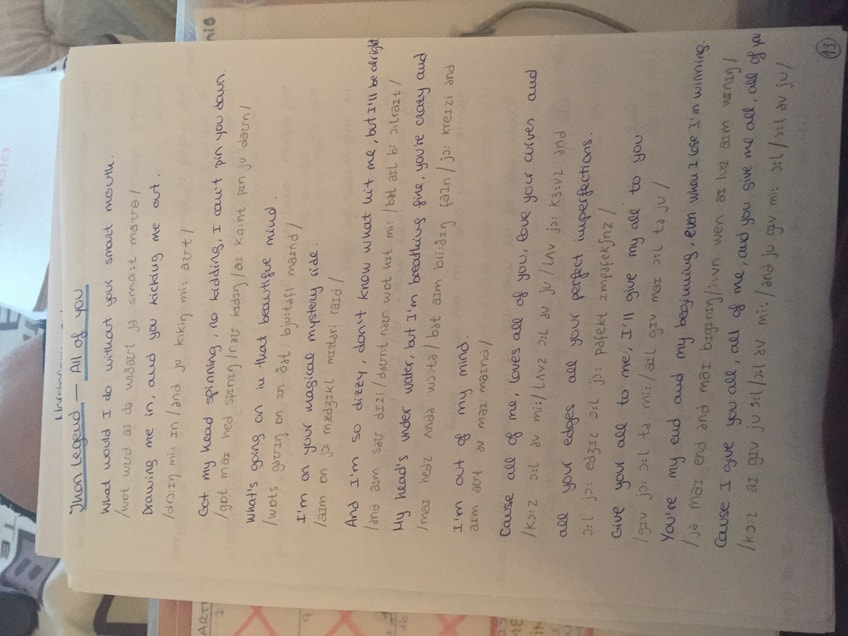 Jhon Legend — All of you
What would I do without your smart mouth.
/wɒt wʊd aɪ də wɪðaʊt jə smaːt maʊθ/
Drawing me in, and you kicking me out.
/drɔːɪŋ miː ɪn/ənd jʊ kɪkɪŋ miː aʊt/
Got my head spinning, no kidding, I can't pin you down.
/gɒt maɪ hed spɪnɪŋ/nəʊ kɪdɪŋ/aɪ kaːnt pɪn jʊ daʊn/
What's going on in that beautiful mind.
/wɒts gəʊɪŋ ɒn ɪn ðət bjuːtəfl maɪnd/
I'm on your magical mystery ride.
/aɪm ɒn jə mædʒɪkl mɪstəri raɪd/
And I'm so dizzy, don't know what hit me, but I'll be alright
/ənd aɪm səʊ dɪzi/dəʊnt nəʊ wɒt hɪt miː/bət aɪl bi ɔːlraɪt/
My head's under water, but I'm breathing fine, you're crazy and
/maɪ hedz ʌndə wɔːtə/bət aɪm briːðɪŋ faɪn/jɔː kreɪzi ənd
I'm out of my mind.
aɪm aʊt əv maɪ maɪnd/
Cause all of me, loves all of you, love your curves and
/kɔːz ɔːl əv miː/lʌvz ɔːl əv jʊ/lʌv jɔː kɜːvz ənd
all your edges all your perfect imperfections.
ɔːl jɔː edʒɪz ɔːl jɔː pəfekt ɪmpəfekʃnz/
Give you all to me, I'll give my all to you.
/gɪv jɔː ɔːl tə miː/aɪl gɪv maɪ ɔːl tə jʊ/
You're my end and my beginning, even when I lose I'm winning.
/jə maɪ end ənd maɪ bɪgɪnɪŋ/iːvn wen aɪ luːz aɪm wɪnɪŋ/
Cause I give you all, all of me, and you give me all, all of you
/kɔːz aɪ gɪv jʊ ɔːl/ɔːl əv miː/ənd jʊ gɪv miː ɔːl/ɔːl əv jʊ/
93
ARTI